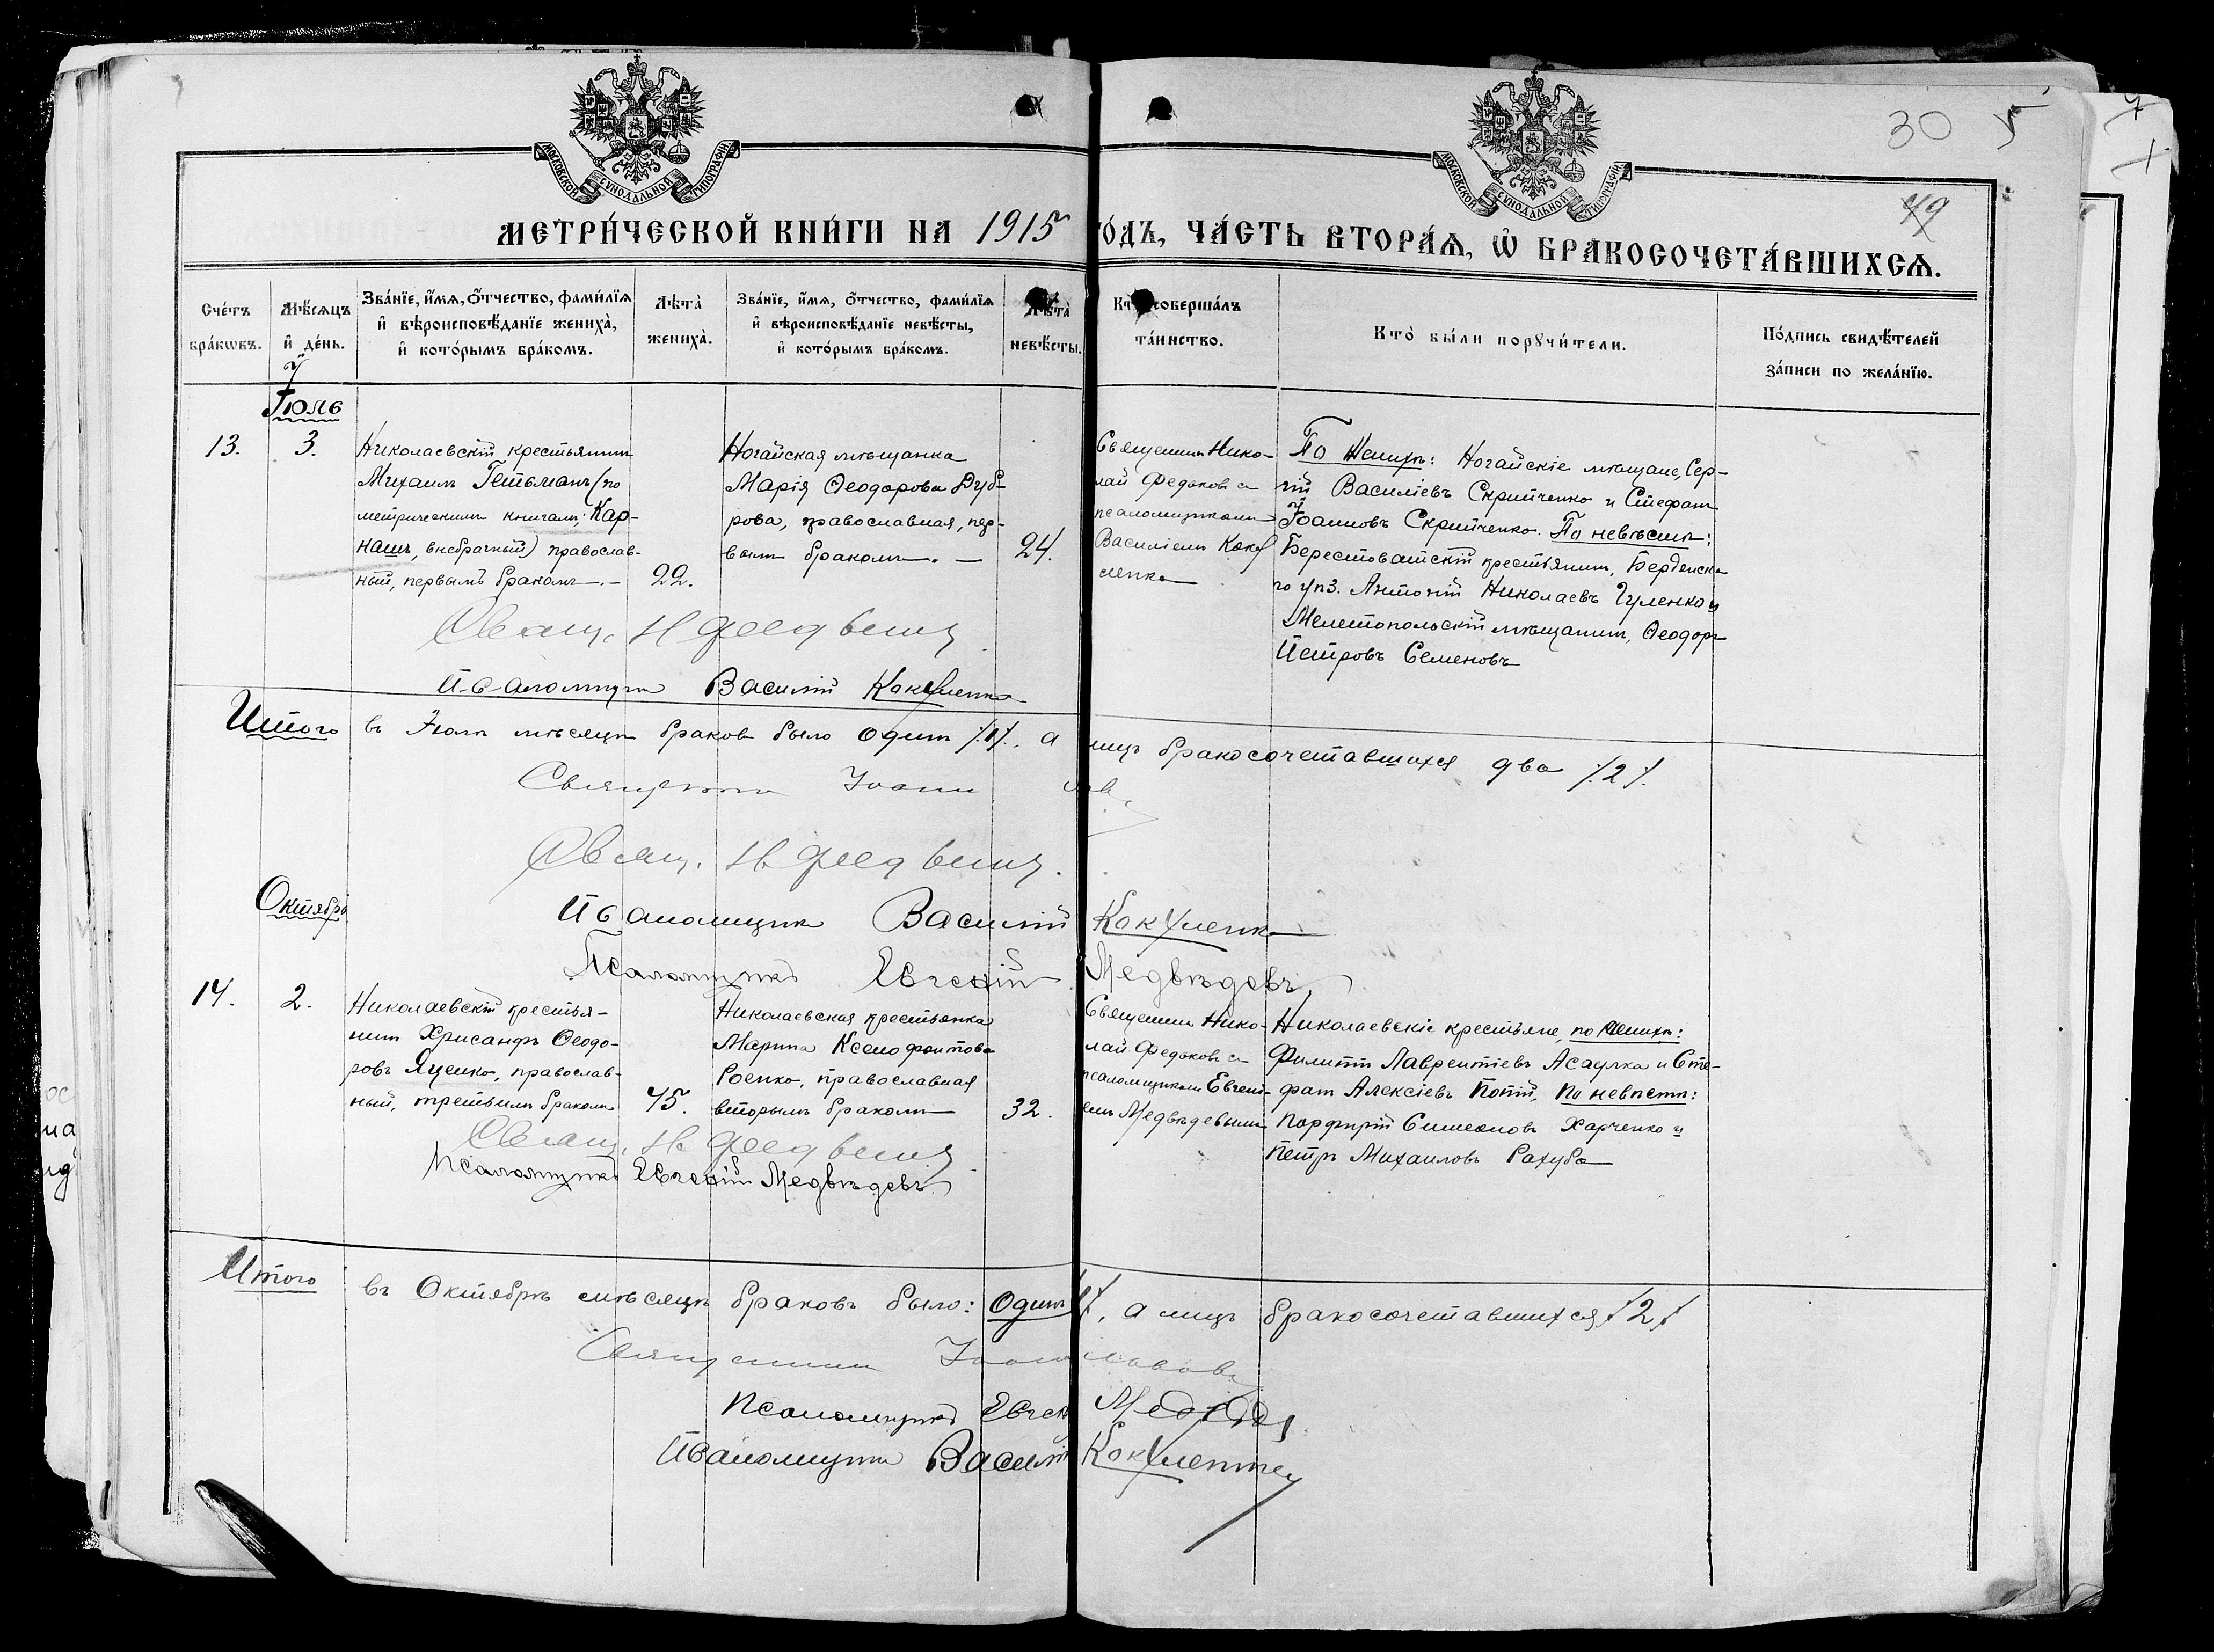 30
49
МОСКОВСКОЙ СѴНОДАЛЬНОЙ ТИПОГРАФІИ
МОСКОВСКОЙ СѴНОДАЛЬНОЙ ТИПОГРАФІИ
МЕТРИ́ЧЕСКОЙ КНИ́ГИ НА 1915 ГО́ДЪ, ЧА́СТЬ ВТОРА́Ѧ, Ѽ БРАКОСОЧЕТА́ВШИХСѦ.
Сче́тъ бра́кѡвъ.
Мѣ́сѧцъ и҆ де́нь.
Зва́нїе, и҆́мѧ, ѻ҆́тчество, фами́лїѧ
и҆ вѣроисповѣ́данїе жениха̀,
и҆ кото́рымъ бра́комъ.
Лѣ́та̀ жениха̀.
Зва́нїе, и҆́мѧ, ѻ҆́тчество, фами́лїѧ
и҆ вѣроисповѣ́данїе невѣ́сты,
и҆ кото́рымъ бра́комъ.
Лѣ́та̀ невѣ́сты.
Кто̀ соверша́лъ
та́инство.
Кто̀ бы́ли порꙋчи́тели.
По́дпись свидѣ́телей
за́писи по жела́нїю.
Іюль
13.
3.
Николаевскій крестьянинъ
Михаилъ Гетьманъ (по
метрическимъ книгамъ: Кар-
нашъ, внебрачный) православ-
ный, первымъ бракомъ. –
22.
Ногайская мѣщанка
Марія Ѳеодорова Дуб-
рова, православная, пер-
вымъ бракомъ. –
24.
Священникъ Нико-
лай Федьковъ съ
псаломщикомъ
Василіемъ Кок
ленко
По женихѣ: Ногайскіе мѣщане, Сер-
гій Василіевъ Скрипченко и Стефанъ
Іоанновъ Скрипченко. По невѣстѣ:
Берестоватскій крестьянинъ, Бердянска-
го уѣз. Антоній Николаевъ Гуленко и
Мелитопольскій мѣщанинъ, Ѳеодоръ
Петровъ Семеновъ
Свящ. Н
Псаломщикъ Василій
Итого въ Іюлѣ мѣсяцѣ браковъ было одинъ /1/. а лицъ бракосочетавшихся два /2/.
Священникъ Іоаннъ
Свящ. Н
Октябрь
Псаломщикъ Василій
Псаломщикъ Евгеній Медвѣдевъ
14.
2.
Николаевскій крестья-
нинъ Хрисанфъ Ѳеодо-
ровъ Яценко, православ-
ный, третьимъ бракомъ
45.
Николаевская крестьянка
Марина Ксенофонтова
Роенко, православная
вторымъ бракомъ
32.
Священникъ Нико-
лай Федьковъ съ
псаломщикомъ Евгені-
емъ Медвѣдевымъ
Николаевскіе крестьяне, по женихѣ:
Филиппъ Лаврентіевъ Асаулка и Сте-
фанъ Алексіевъ Потій, по невѣстѣ:
Порфирій Симеоновъ Харченко и
Петръ Михаиловъ Рахуба
Свящ. Н
Псаломщикъ Евгеній Медвѣдевъ
Итого въ Октябрѣ мѣсяцѣ браковъ было: одинъ /1/, а лицъ бракосочетавшихся /2/
Священникъ
Псаломщикъ
Псаломщикъ Василій